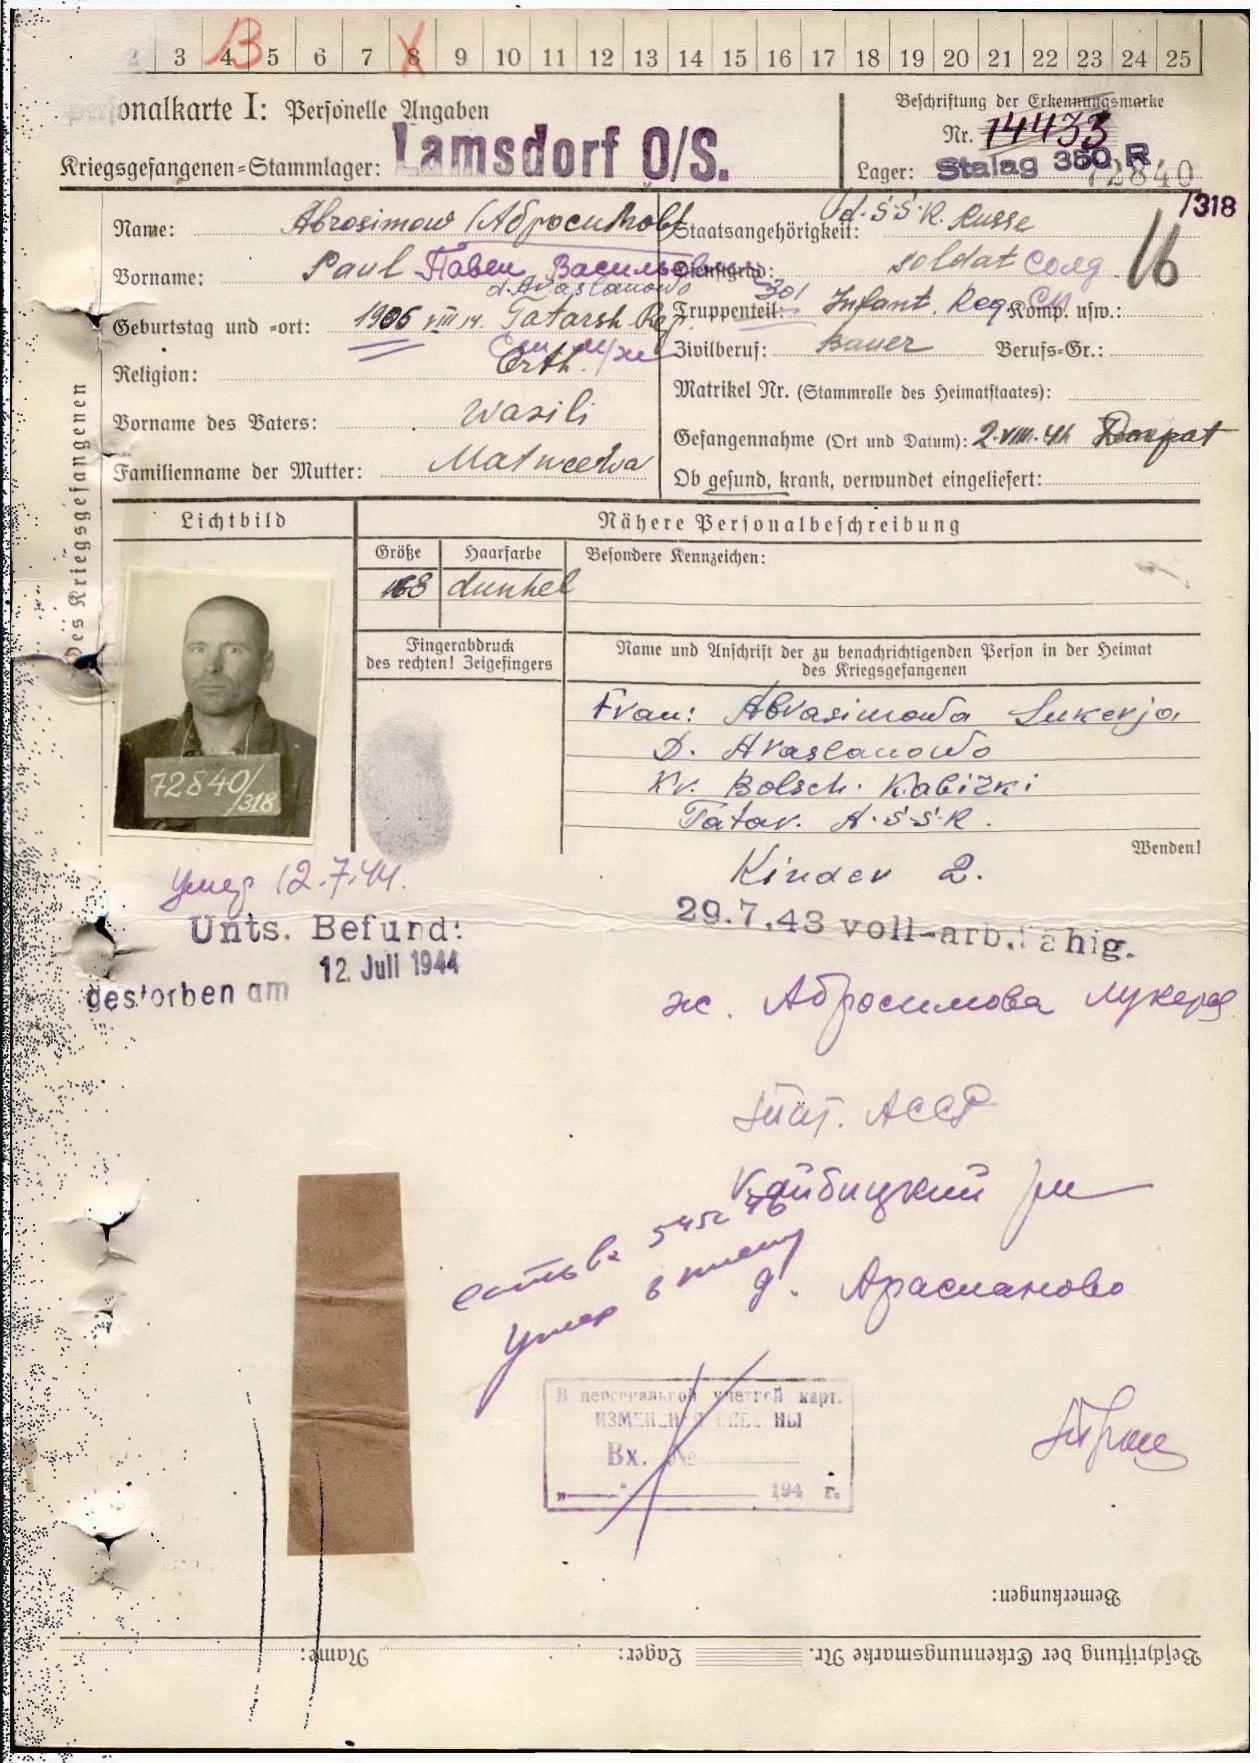 2 3 4 5 6 7 8 9 10 11 12 13 14 15 16 17 18 19 20 21 22 23 24 25
B
Personalkarte I: Personelle Angaben
Kriegsgefangenen-Stammlager: Lamsdorf O/S.
Beschriftung der Erkennungsmarke
Nr. 14433
Lager: Stalag 350 R
72840
/318
Des Kriegsgefangenen
Name: Abrosimow /Абросимов/
Vorname: Paul Павел Васильевич
d. Araslanowo
Geburtstag und -ort: 1906 VIII 14. Tatarsk Rep.
Religion: Orth.
Vorname des Vaters: Wasili
Familienname der Mutter: Matweewa
Staatsangehörigkeit: U.d.S.S.R. Russe
16
Dienstgrad: Soldat Солд
Truppenteil: 301 Infant. Reg. Komp. usw.:
Zivilberuf: Bauer Berufs-Gr.:
Matrikel Nr. (Stammrolle des Heimatstaates):
Gefangennahme (Ort und Datum): 2.VIII.41 Dorpat
Ob gesund, krank, verwundet eingeliefert:
Lichtbild
Nähere Personalbeschreibung
Größe Haarfarbe Besondere Kennzeichen:
168 dunkel
Fingerabdruck
des rechten! Zeigefingers
Name und Anschrift der zu benachrichtigenden Person in der Heimat
des Kriegsgefangenen
72840/318
Frau: Abrasimowa Lukerja
D. Araslanowo
Kr. Bolsch. Kabizki
Tatar. A.S.S.R.
Wenden!
Kinder 2.
умер 12.7.44.
Unts. Befund:
12. Juli 1944
gestorben am
29.7.43 voll-arb.fähig.
ж. Абросимова Лукерья
Тат. АССР
Кайбицкий р-н
д. Арасланово
умер в плену
В персональной учетной карт.
ИЗМЕНЕНИЯ ВНЕСЕНЫ
Вх. №
"___" 194 г.
Bemerkungen:
Beschriftung der Erkennungsmarke Nr. Lager: Name: